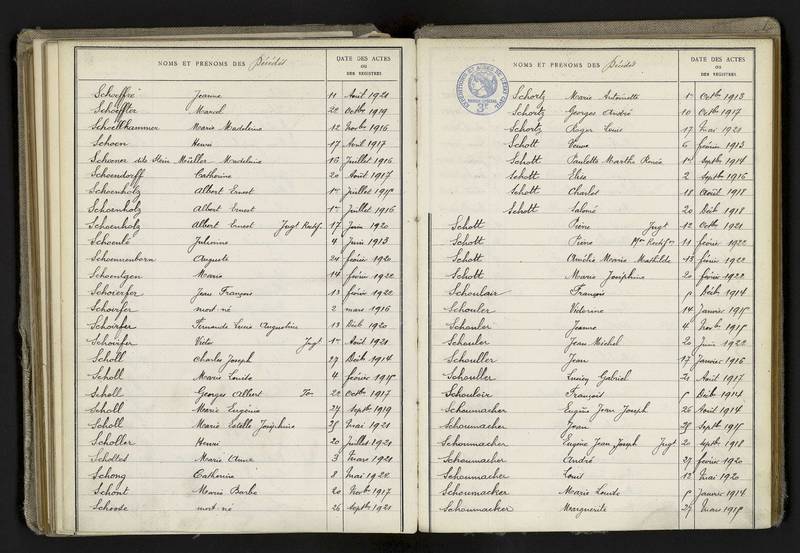 NOMS ET PRÉNOMS DES Décédés DATE DES ACTES OU DES REGISTRES
Schoeffré Jeanne 11 Août 1921
Schoeffler Marcel 22 Octbre 1919
Schoellhammer Marie Madeleine 12 Novbre 1916
Schoen Henri 17 Avril 1917
Schoener dite Stein Müller Madeleine 16 Juillet 1916
Schoendorff Catherine 20 Août 1917
Schoenholz Albert Ernest 1er Juillet 1915
Schoenholz Albert Ernest 1er Juillet 1916
Schoenholz Albert Ernest Jugt Rectif. 17 Juin 1920
Schoenlé Julienne 4 Juin 1913
Schoennenborn Auguste 24 février 1920
Schoentgen Marie 14 février 1922
Schoerfer Jean François 13 février 1922
Schoerfer mort-né 2 mars 1916
Schoirfer Fernande Lucie Augustine 13 Décb 1920
Schoirfer Victor Jugt 1er Août 1921
Scholl Charles Joseph 27 Décb 1914
Scholl Marie Louise 4 février 1915
Scholl Georges Albert 22 Octbre 1917
Scholl Marie Eugénie 24 Septbre 1919
Scholl Marie Estelle Joséphine 25 Mai 1921
Scholler Henri 20 Juillet 1921
Scholtes Marie Anne 3 Mars 1921
Schong Catherine 8 Mai 1922
Schont Marie Barbe 20 Novbre 1917
Schoose mort-né 26 Septbre 1921
NOMS ET PRÉNOMS DES Décédés DATE DES ACTES OU DES REGISTRES
Schortz Marie Antoinette 1er Octbre 1913
Schortz Georges André 10 Octbre 1917
Schortz Roger Louis 17 Mai 1921
Schott Veuve 6 février 1913
Schott Paulette Marthe Renée 1er Septbre 1914
Schott Elise 2 Septbre 1916
Schott Charles 18 Août 1918
Schott Salomé 20 Décb 1918
Schott Pierre Jugt 12 Octbre 1921
Schott Pierre Mon Rectifon 11 février 1922
Schott Amélie Marie Mathilde 13 février 1922
Schott Marie Joséphine 20 février 1922
Schoulair François 5 Décb 1914
Schouler Victorine 14 Janvier 1915
Schouler Jeanne 4 Novbre 1915
Schouler Jean Michel 20 Juin 1922
Schouller Jean 17 Janvier 1916
Schouller Lucien Gabriel 21 Août 1917
Schouloir François 5 Décb 1914
Schoumacher Eugène Jean Joseph 26 Août 1914
Schoumacher Jean 25 Septbre 1915
Schoumacher Eugène Jean Joseph Jugt 20 Septbre 1918
Schoumacher André 27 février 1920
Schoumacher Louis 12 Mai 1920
Schoumacker Marie Louise 5 Janvier 1914
Schoumacker Marguerite 27 Mars 1915